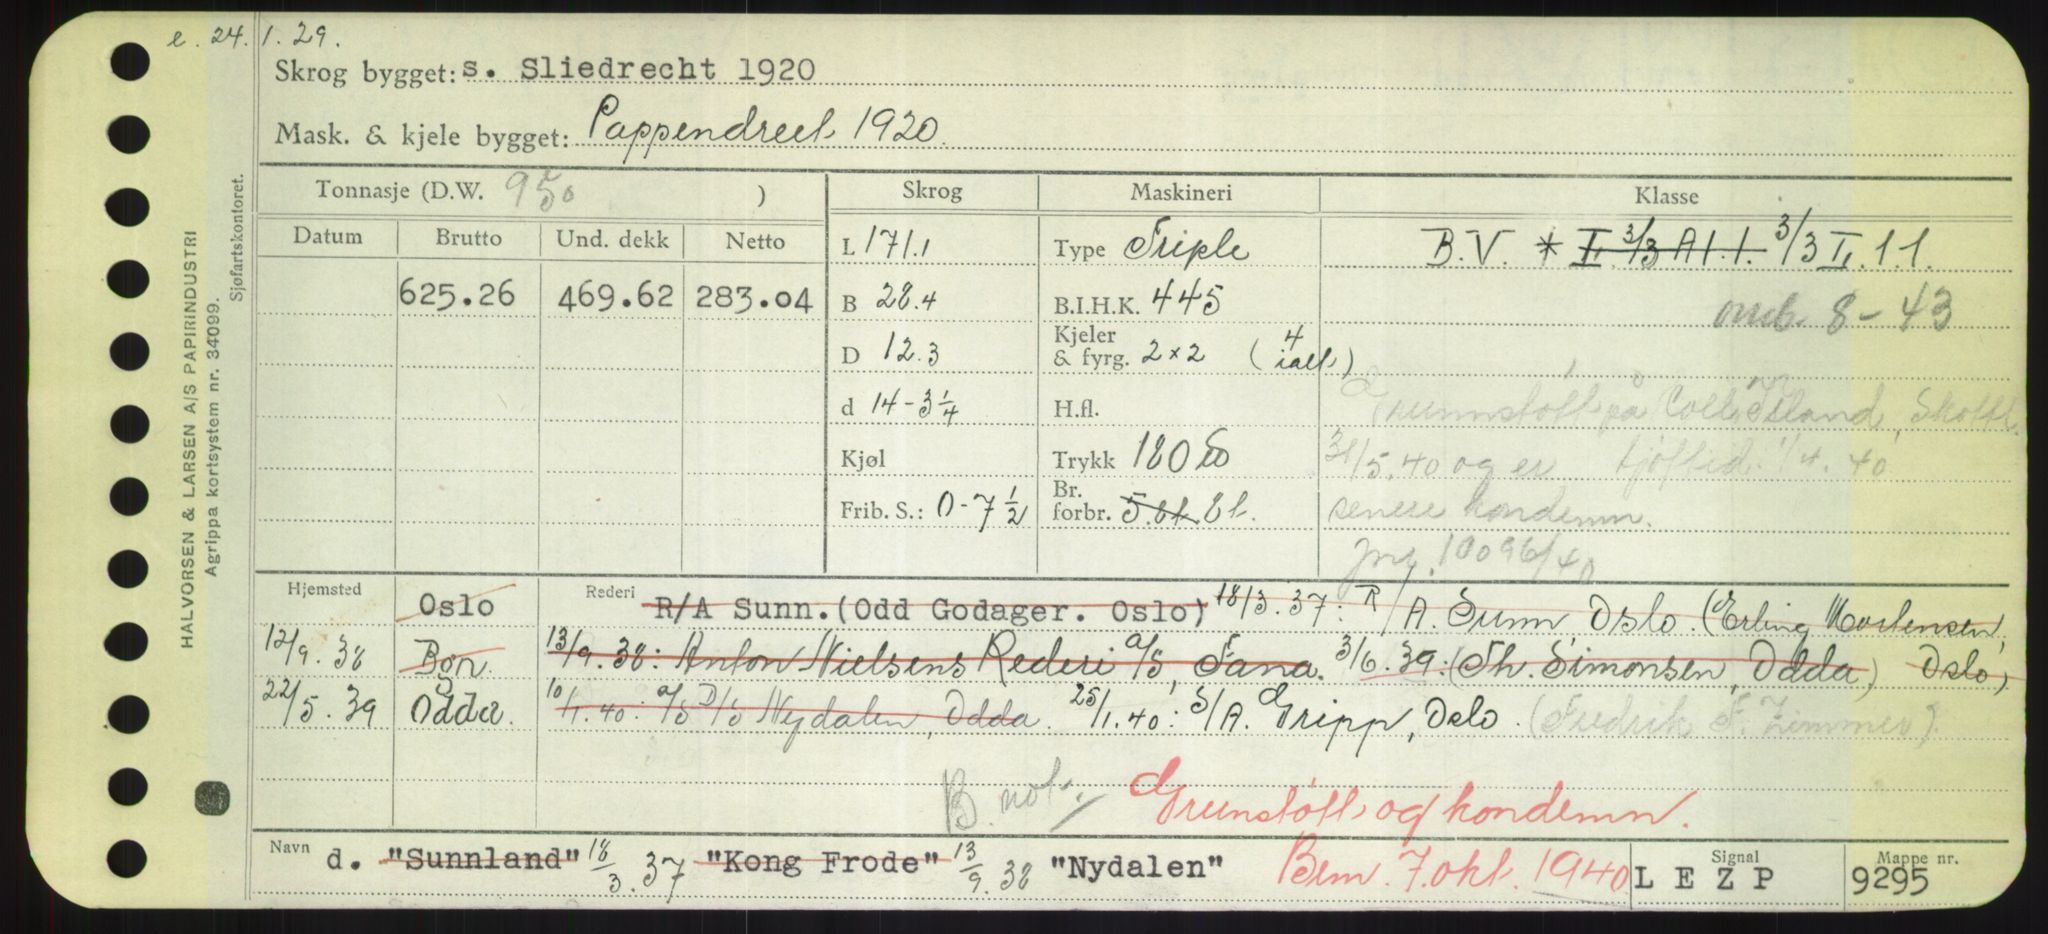 e. 24. 1. 29.
Skrog bygget: s. Sliedrecht 1920
Mask. & kjele bygget: Pappendreet 1920.
Tonnasje (D.W. 950 ) Skrog Maskineri Klasse
Datum Brutto Und. dekk Netto L 171.1 Type Triple B.V. * I. 3/3 A 1.1. 3/3 II. 1.1.
625.26 469.62 283.04 B 28.4 B.I.H.K. 445 omb. 8-43
D 12.3 Kjeler & fyrg. 2×2 (4 ialt)
d 14-3 1/4 H.fl. Grunnstøtt på Coll Island, Skottl.
Kjøl Trykk 180 31/5.40 og er 1/4.40
Frib. S.: 0-7 1/2 Br. forbr. 5. 8t. 8t. senere kondemn.
Jnr. 10096/40
Hjemsted Oslo Rederi R/A Sunn. (Odd Godager. Oslo) 18/3.37: R/A. Sunn Oslo. (Erling Mortensen,
12/9.38 Bgn. 13/9.38: Anton Nielsens Rederi a/s, Fana. 3/6.39: (Th. Simonsen, Odda) Oslo)
22/5.39 Odda. 10/1.40: a/s D/S Nydalen, Odda. 25/1.40: S/A. Gripp, Oslo. (Fredrik F. Zimmer).
B. not. Grunstøtt og kondemn.
Navn d. "Sunnland" 18/3.37 "Kong Frode" 13/9.38 "Nydalen" Brm. 7. okt. 1940. Signal LEZP Mappe nr. 9295
HALVORSEN & LARSEN A/S PAPIRINDUSTRI
Agrippa kortsystem nr. 34099.
Sjøfartskontoret.